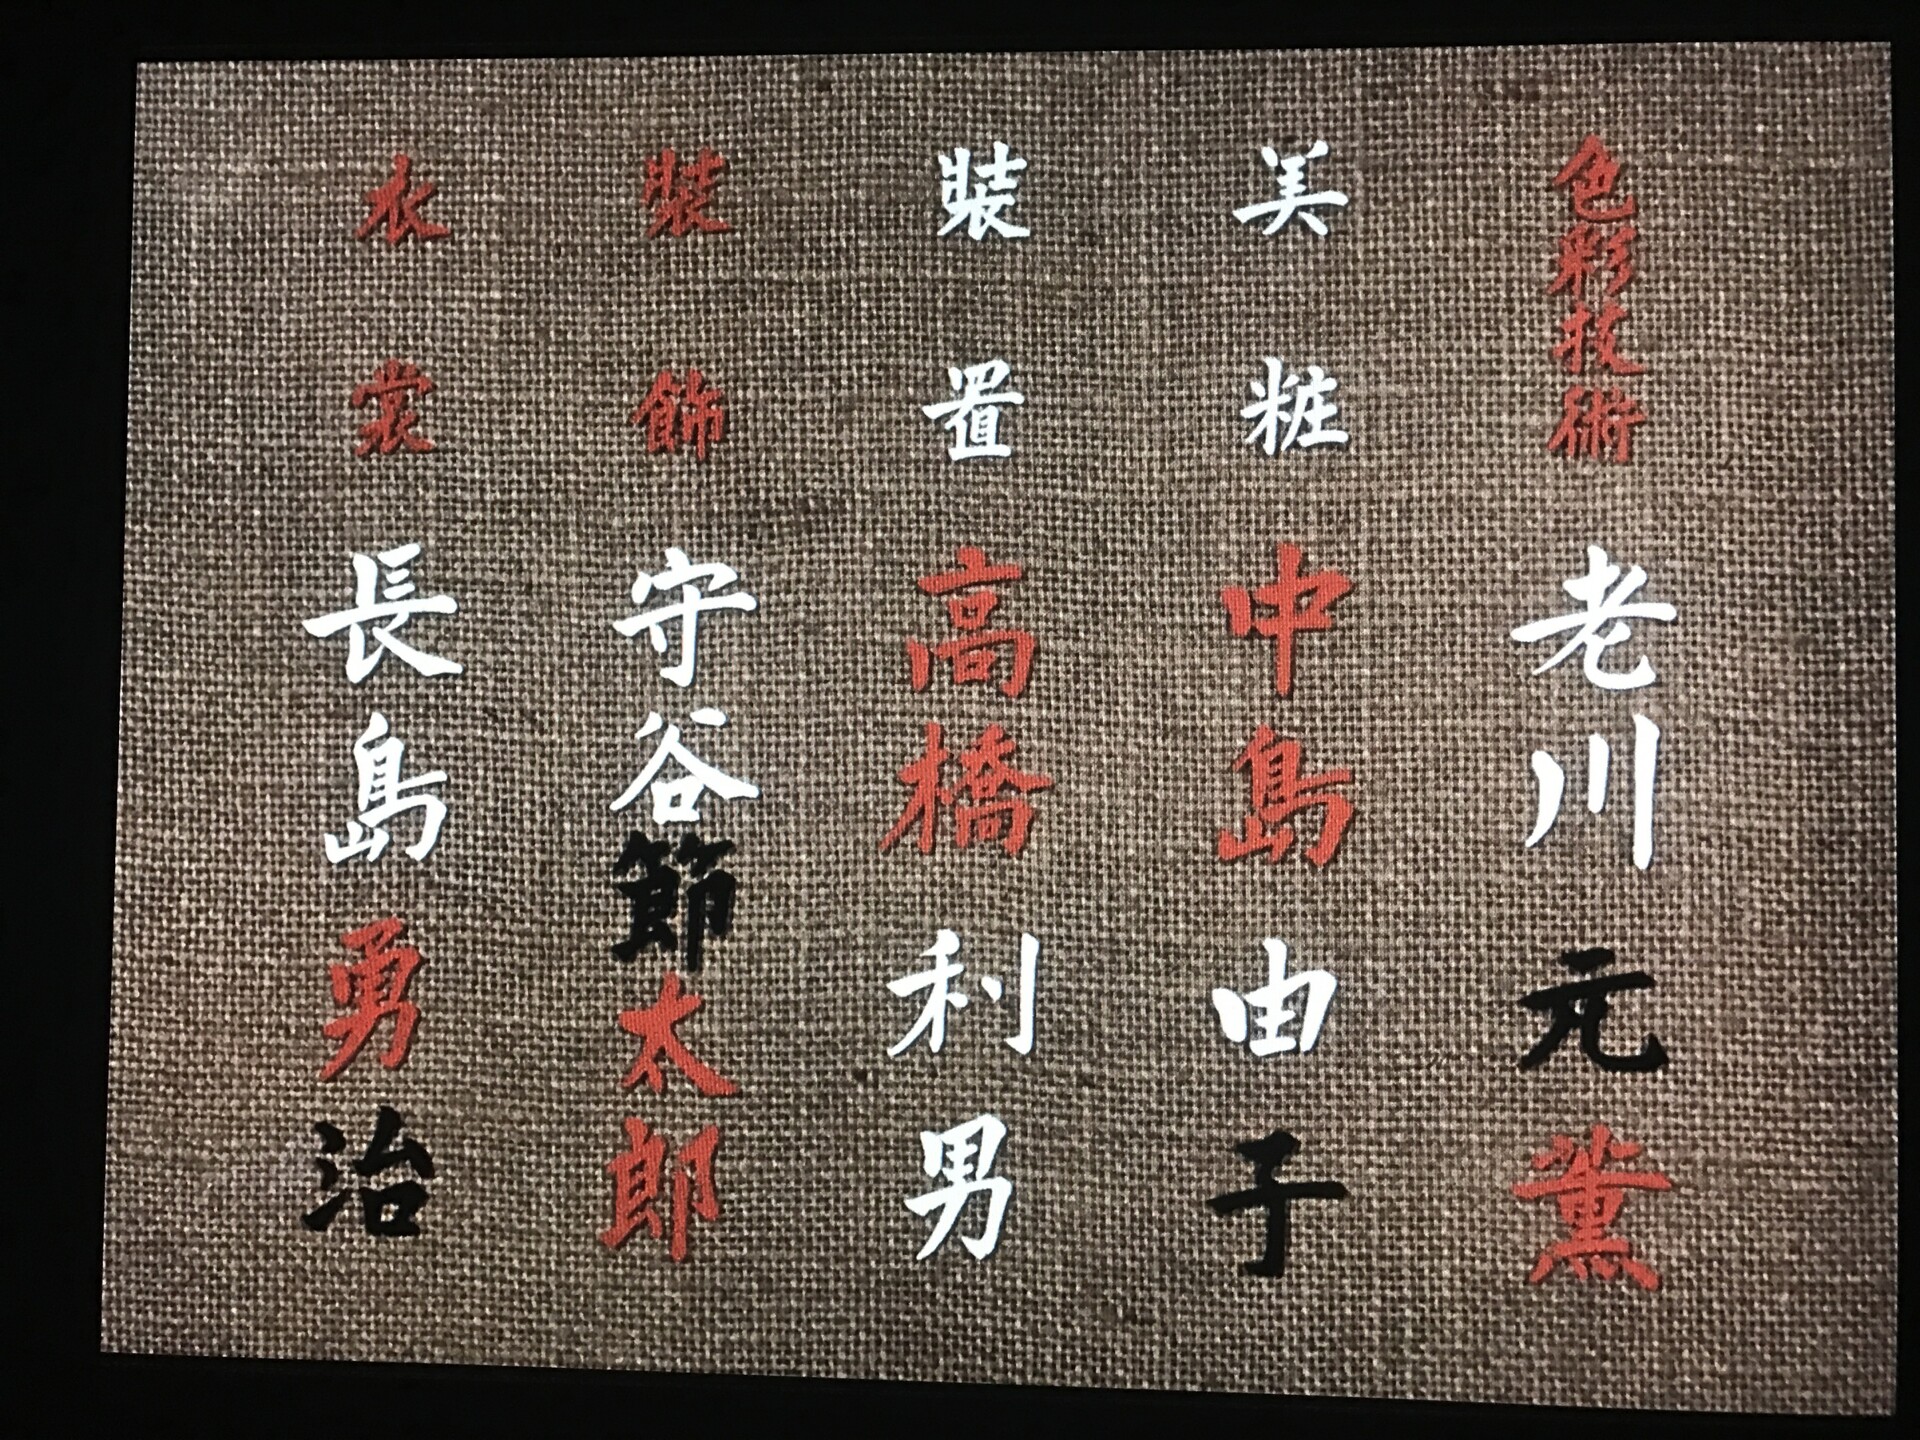 色彩技術 老川元薫
美粧 中島由子
装置 高橋利男
装飾 守谷節太郎
衣裳 長島勇治